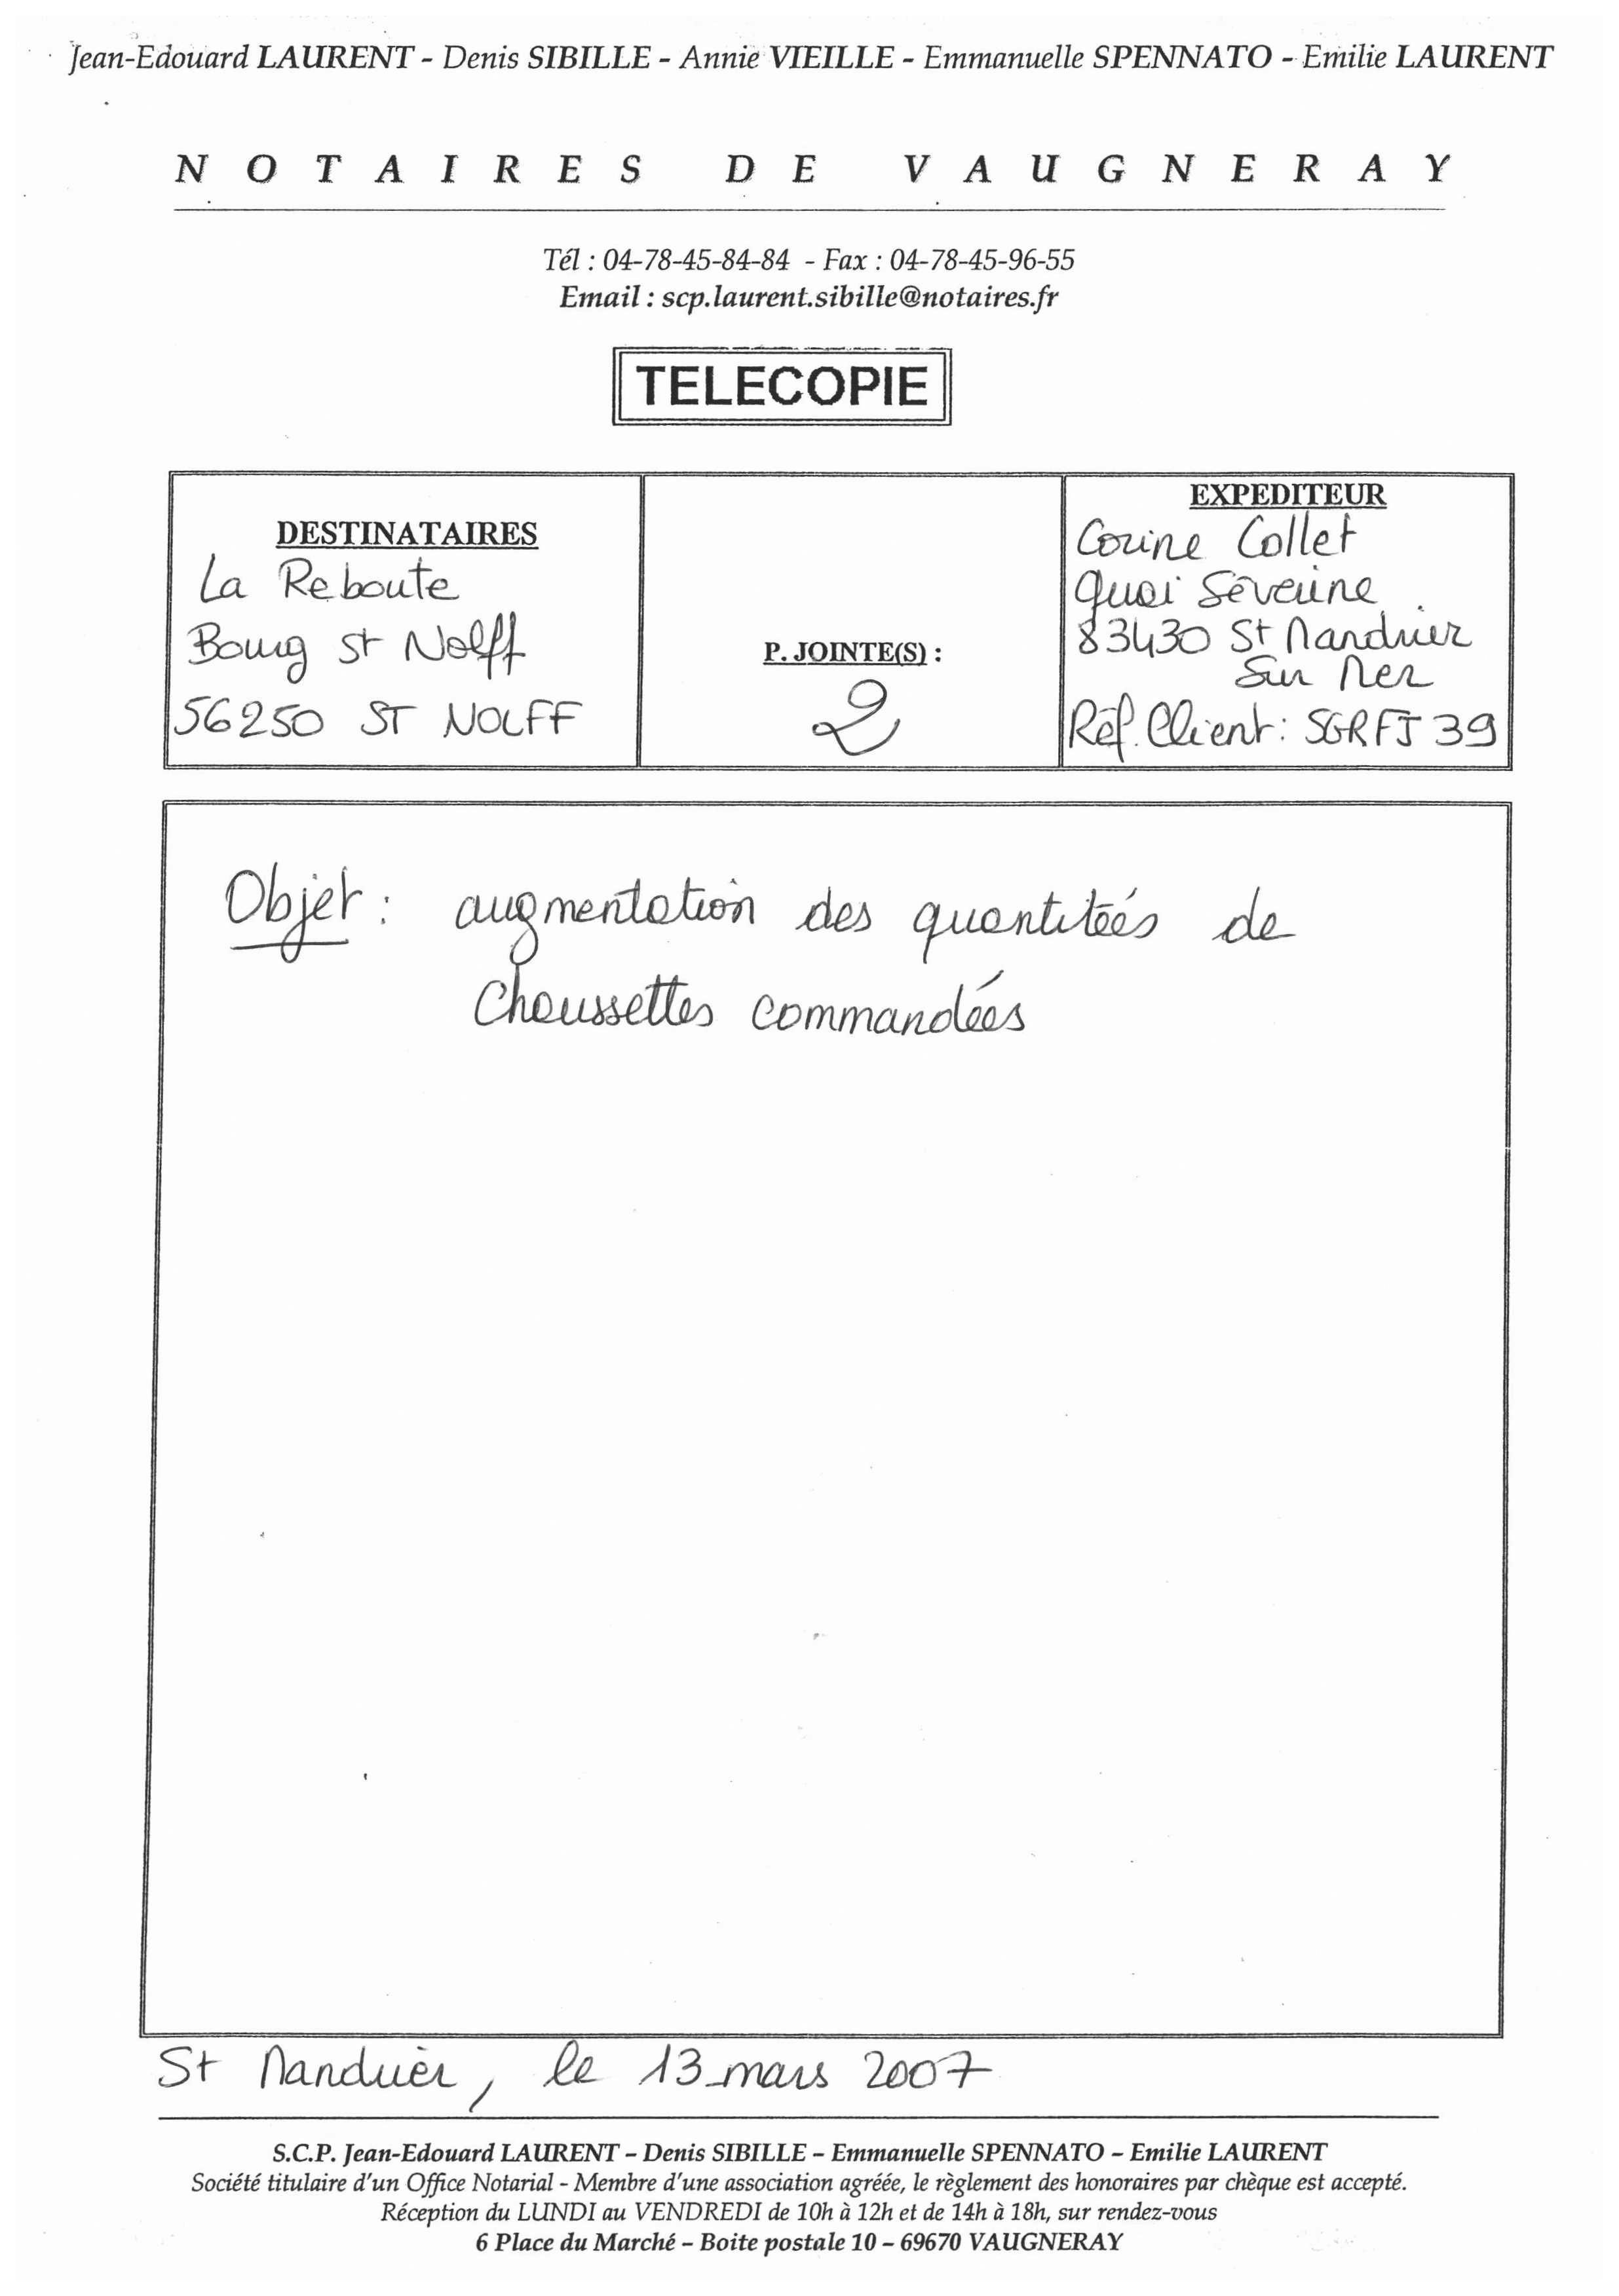 Jean-Edouard LAURENT - Denis SIBILLE - Annie VIEILLE - Emmanuelle SPENNATO - Emilie LAURENT
NOTAIRES DE VAUGNERAY
Tél : 04-78-45-84-84 - Fax : 04-78-45-96-55
Email : scp.laurent.sibille@notaires.fr
TELECOPIE
DESTINATAIRES
La Reboute
Bourg St Nolff
56250 ST NOLFF
P. JOINTE(S) :
2
EXPEDITEUR
Corine Collet
Quai Séverine
83430 St Mandrier
Sur Mer
Réf. Client : SGRFJ 39
Objet : augmentation des quantitées de
Chaussettes commandées
St Mandrier, le 13 mars 2007
S.C.P. Jean-Edouard LAURENT – Denis SIBILLE – Emmanuelle SPENNATO – Emilie LAURENT
Société titulaire d'un Office Notarial - Membre d'une association agréée, le règlement des honoraires par chèque est accepté.
Réception du LUNDI au VENDREDI de 10h à 12h et de 14h à 18h, sur rendez-vous
6 Place du Marché – Boite postale 10 – 69670 VAUGNERAY